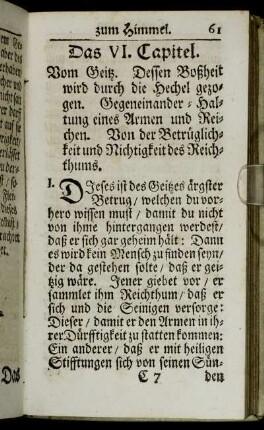 zum Himmel. 61
Das VI. Capitel.
Vom Geitz. Dessen Boßheit
wird durch die Hechel gezo-
gen. Gegeneinander-Hal-
tung eines Armen und Rei-
chen. Von der Betrüglich-
keit und Nichtigkeit des Reich-
thums.
1. DIeses ist des Geitzes ärgster
Betrug/ welchen du vor-
hero wissen must / damit du nicht
von ihme hintergangen werdest/
daß er sich gar geheim hält: Dann
es wird kein Mensch zu finden seyn/
der da gestehen solte/ daß er gei-
tzig wäre. Jener giebet vor/ er
sammlet ihm Reichthum/ daß er
sich und die Seinigen versorge:
Dieser/ damit er den Armen in ih-
rer Dürfftigkeit zu statten kommen:
Ein anderer/ daß er mit heiligen
Stifftungen sich von seinen Sün-
C 7 den
Das